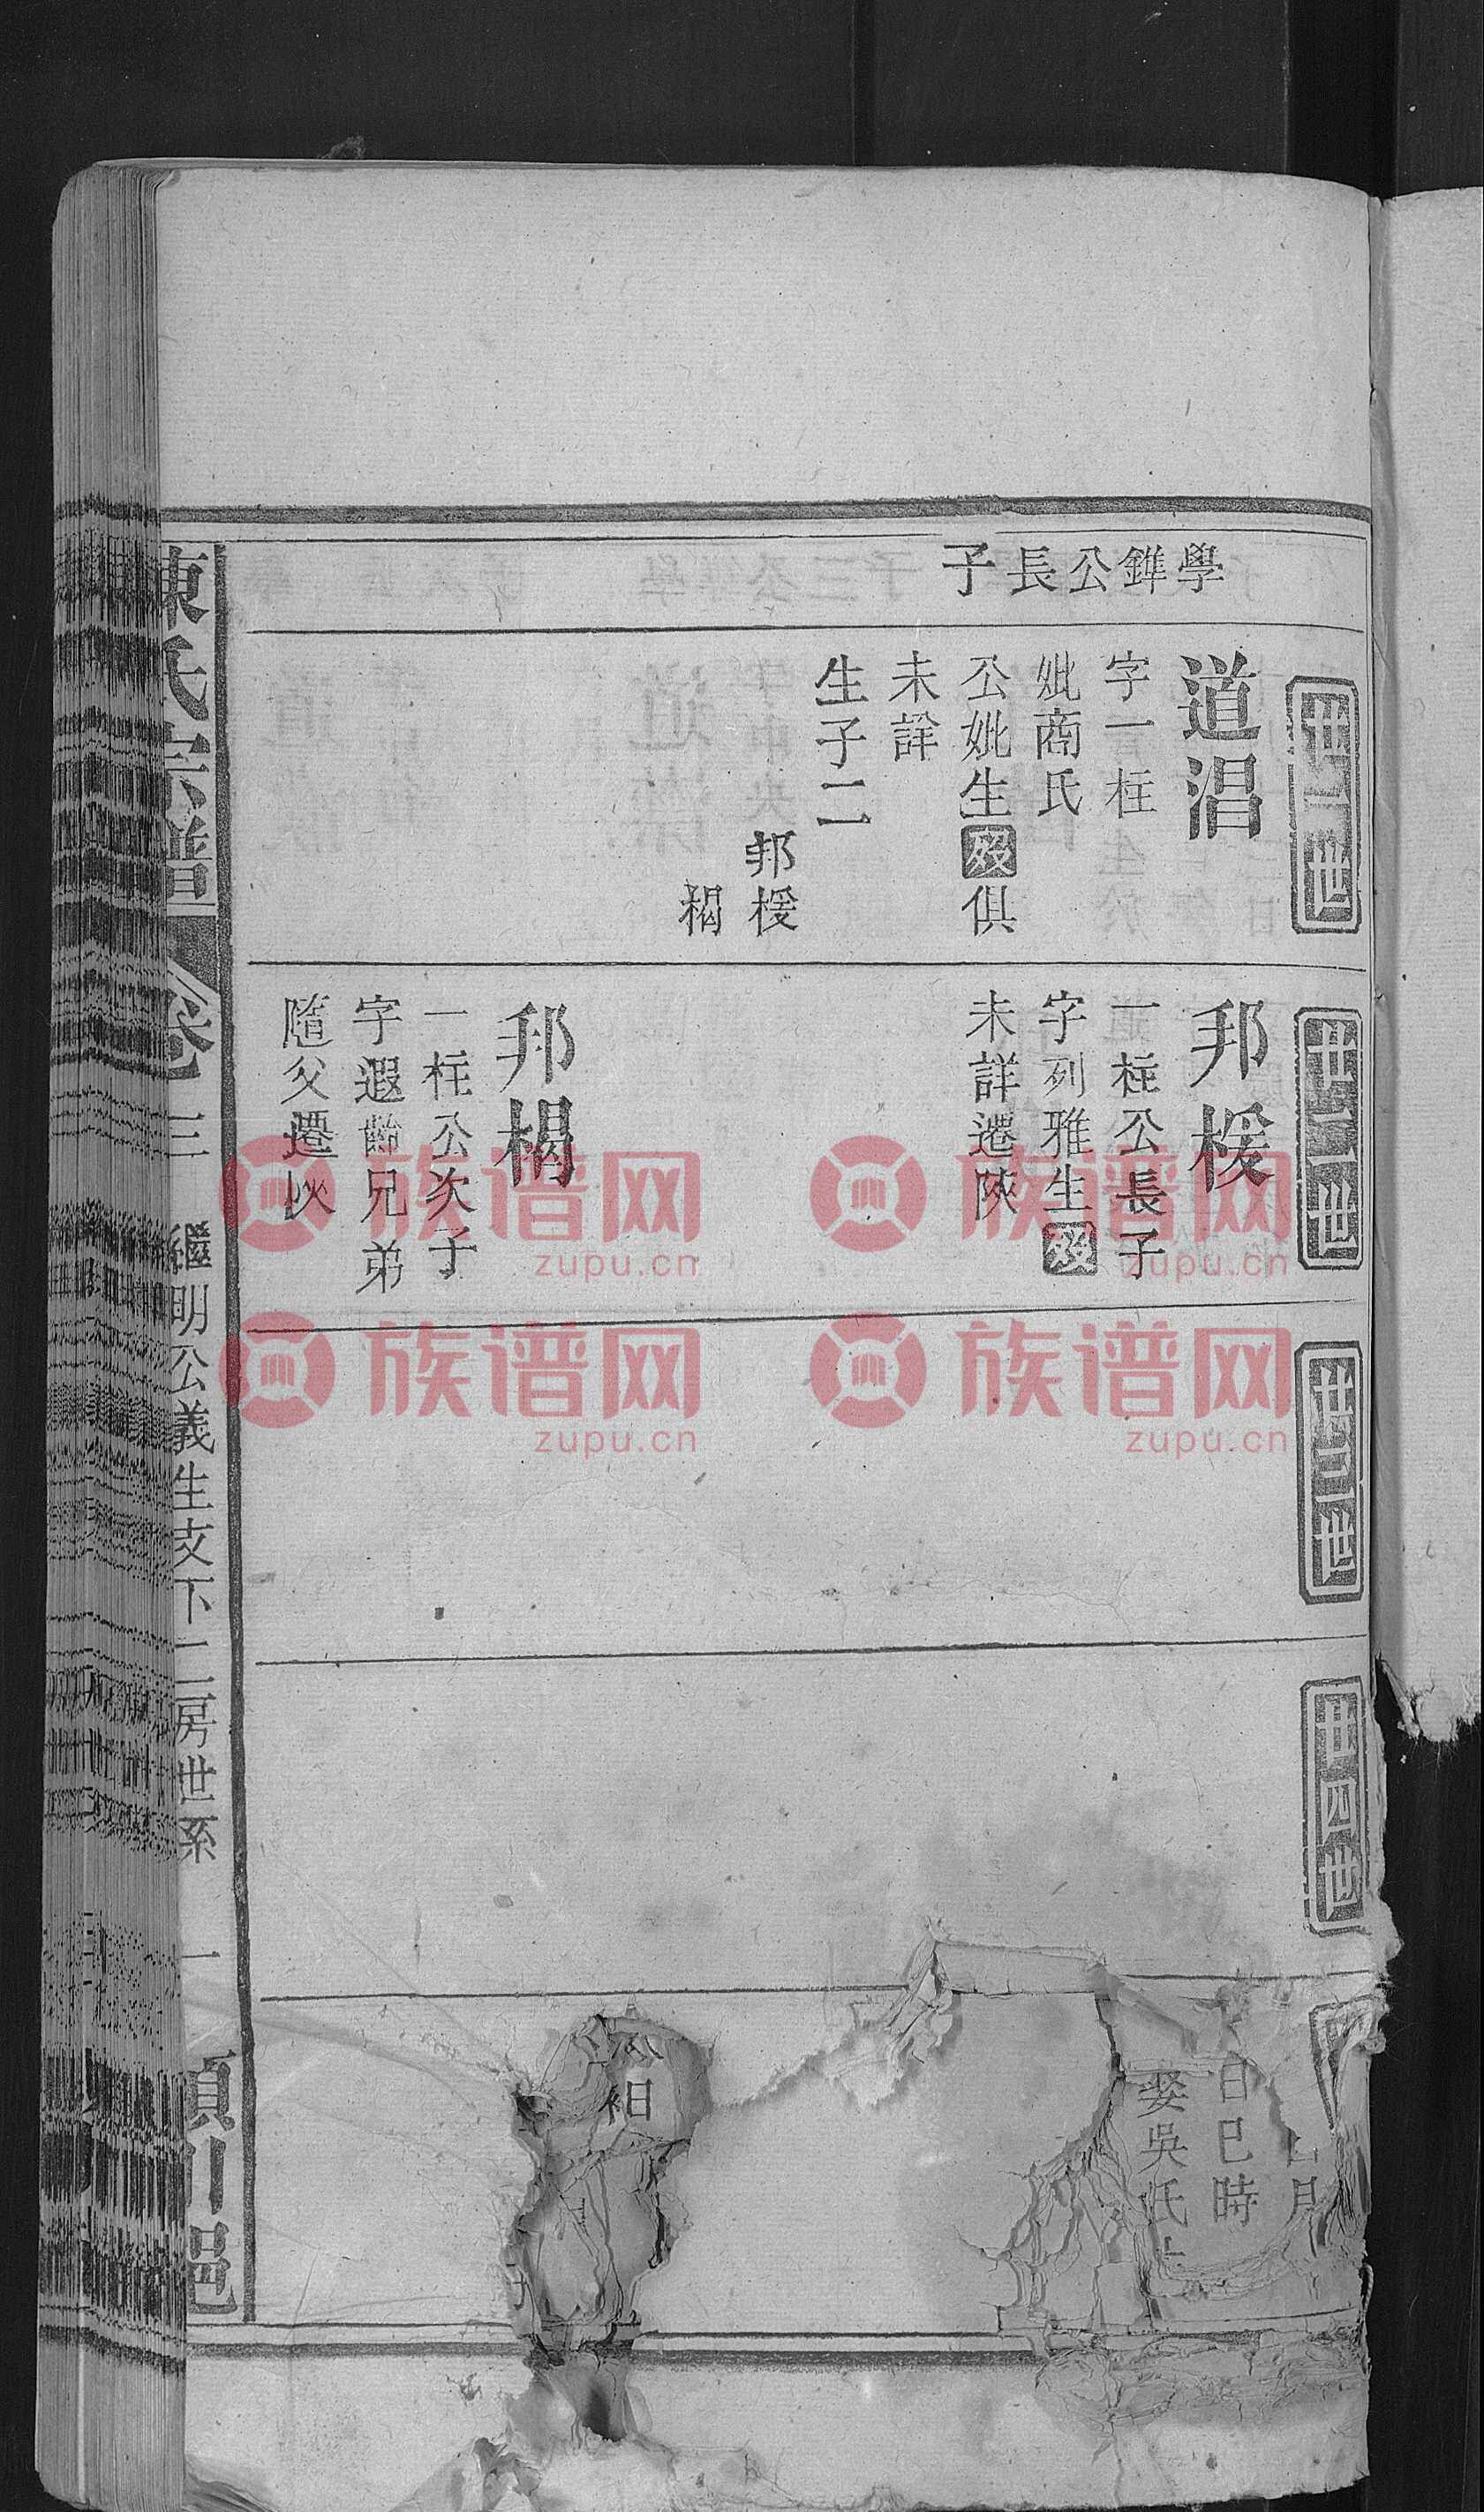 學鏵公長子
廿一世
道淐
字一柱
妣商氏
公妣生歿俱
未詳
生子二
邦楥
楬
廿二世
邦楥
一柱公長子
字列雅生歿
未詳遷陝
邦楬
一柱公次子
字遐齡兄弟
隨父遷陝
廿三世
廿四世
日巳時
娶吳氏
陳氏宗譜
卷三
繼明公義生支下二房世系
一
族谱网
zupu.cn
族谱网
zupu.cn
族谱网
zupu.cn
族谱网
zupu.cn